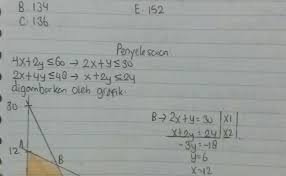 B. 134
E. 152
C. 136
Penyelesaian
4x+2y ≤ 60 → 2x+y ≤ 30
2x+4y ≤ 48 → x+2y ≤ 24
digambarkan oleh grafik
30
12 A
B
B → 2x+y = 30 | x1
x+2y = 24 | x2
-3y = -18
y = 6
x = 12